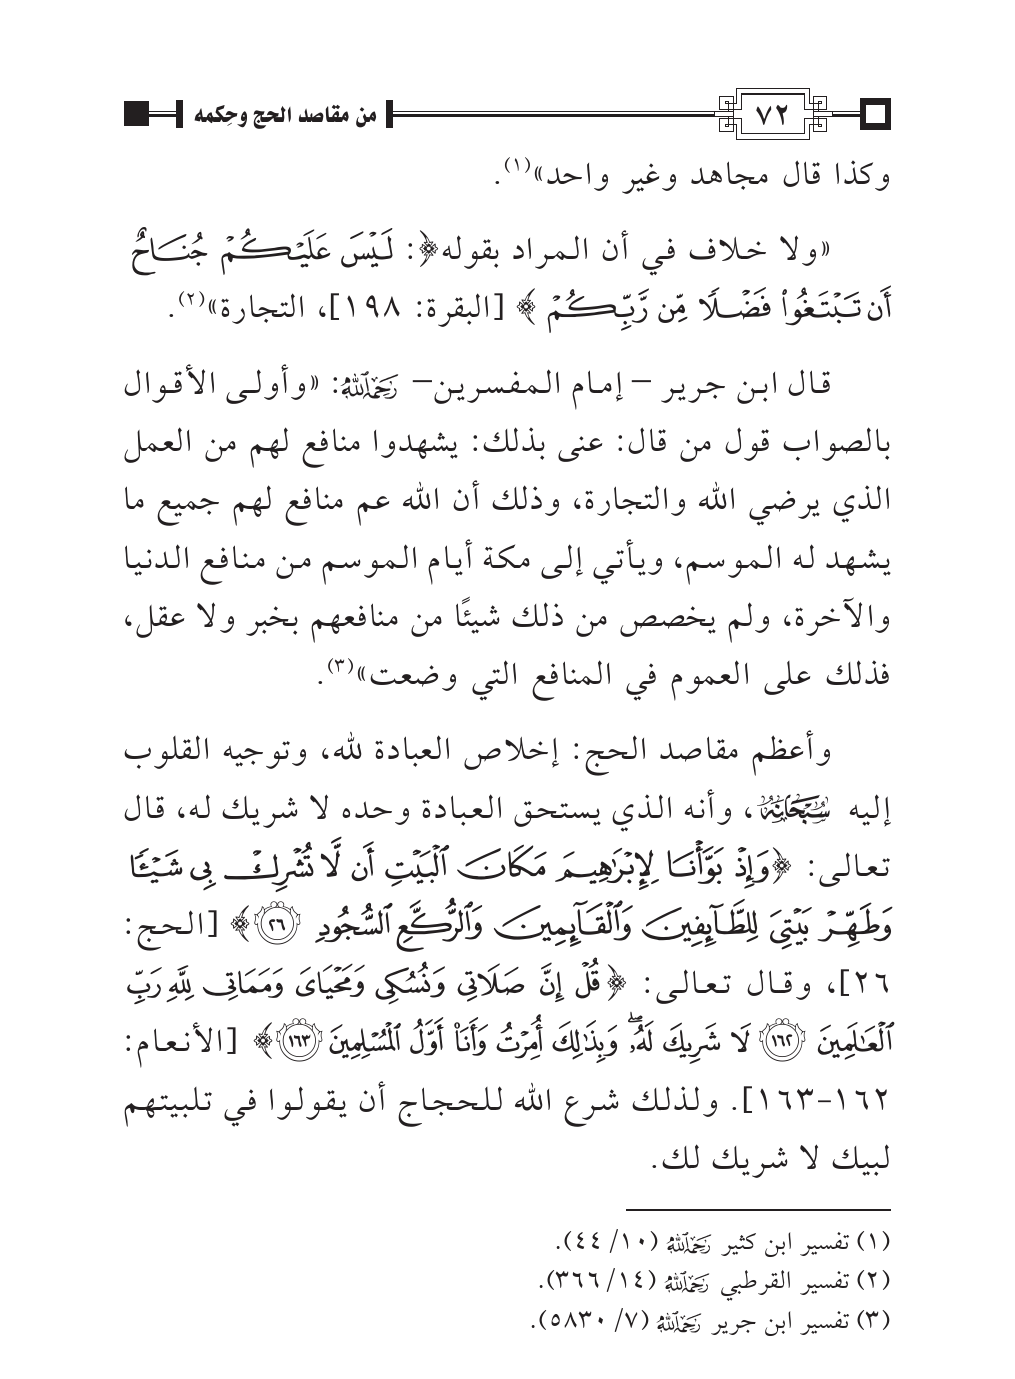 ٧٢
من مقاصد الحج وحِكمه
وكذا قال مجاهد وغير واحد»(١).
«ولا خلاف في أن المراد بقوله﴿: لَيْسَ عَلَيْكُمْ جُنَاحٌ
أَن تَبْتَغُوا۟ فَضْلًا مِّن رَّبِّكُمْ ﴾ [البقرة: ١٩٨]، التجارة»(٢).
قال ابن جرير – إمام المفسرين– رَحِمَهُ ٱللَّهُ: «وأولى الأقوال
بالصواب قول من قال: عنى بذلك: يشهدوا منافع لهم من العمل
الذي يرضي الله والتجارة، وذلك أن الله عم منافع لهم جميع ما
يشهد له الموسم، ويأتي إلى مكة أيام الموسم من منافع الدنيا
والآخرة، ولم يخصص من ذلك شيئًا من منافعهم بخبر ولا عقل،
فذلك على العموم في المنافع التي وضعت»(٣).
وأعظم مقاصد الحج: إخلاص العبادة لله، وتوجيه القلوب
إليه سُبْحَانَهُ، وأنه الذي يستحق العبادة وحده لا شريك له، قال
تعالى: ﴿وَإِذْ بَوَّأْنَا لِإِبْرَٰهِيمَ مَكَانَ ٱلْبَيْتِ أَن لَّا تُشْرِكْ بِى شَيْـًٔا
وَطَهِّرْ بَيْتِىَ لِلطَّآئِفِينَ وَٱلْقَآئِمِينَ وَٱلرُّكَّعِ ٱلسُّجُودِ ٢٦﴾ [الحج:
٢٦]، وقال تعالى: ﴿قُلْ إِنَّ صَلَاتِى وَنُسُكِى وَمَحْيَاىَ وَمَمَاتِى لِلَّهِ رَبِّ
ٱلْعَٰلَمِينَ ١٦٢ لَا شَرِيكَ لَهُۥۖ وَبِذَٰلِكَ أُمِرْتُ وَأَنَا۠ أَوَّلُ ٱلْمُسْلِمِينَ ١٦٣﴾ [الأنعام:
١٦٢–١٦٣]. ولذلك شرع الله للحجاج أن يقولوا في تلبيتهم
لبيك لا شريك لك.
(١) تفسير ابن كثير رَحِمَهُ ٱللَّهُ (١٠/ ٤٤).
(٢) تفسير القرطبي رَحِمَهُ ٱللَّهُ (١٤/ ٣٦٦).
(٣) تفسير ابن جرير رَحِمَهُ ٱللَّهُ (٧/ ٥٨٣٠).